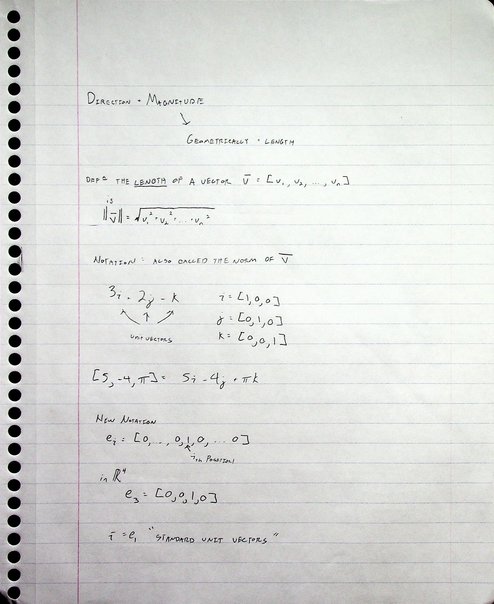 DIRECTION + MAGNITUDE
↓
GEOMETRICALLY + LENGTH
DEFⁿ THE LENGTH OF A VECTOR V̅ = [v₁, v₂, ..., vₙ]
is
‖V̅‖ = √(v₁² + v₂² + ... + vₙ²)
NOTATION: ALSO CALLED THE NORM OF V̅
3i + 2j - k    i = [1,0,0]
j = [0,1,0]
UNIT VECTORS    k = [0,0,1]
[5,-4,π] = 5i - 4j + πk
NEW NOTATION
eᵢ = [0, ..., 0,1,0, ... 0]
ith POSITION
in ℝ⁴
e₃ = [0,0,1,0]
i = e₁ "STANDARD UNIT VECTORS"